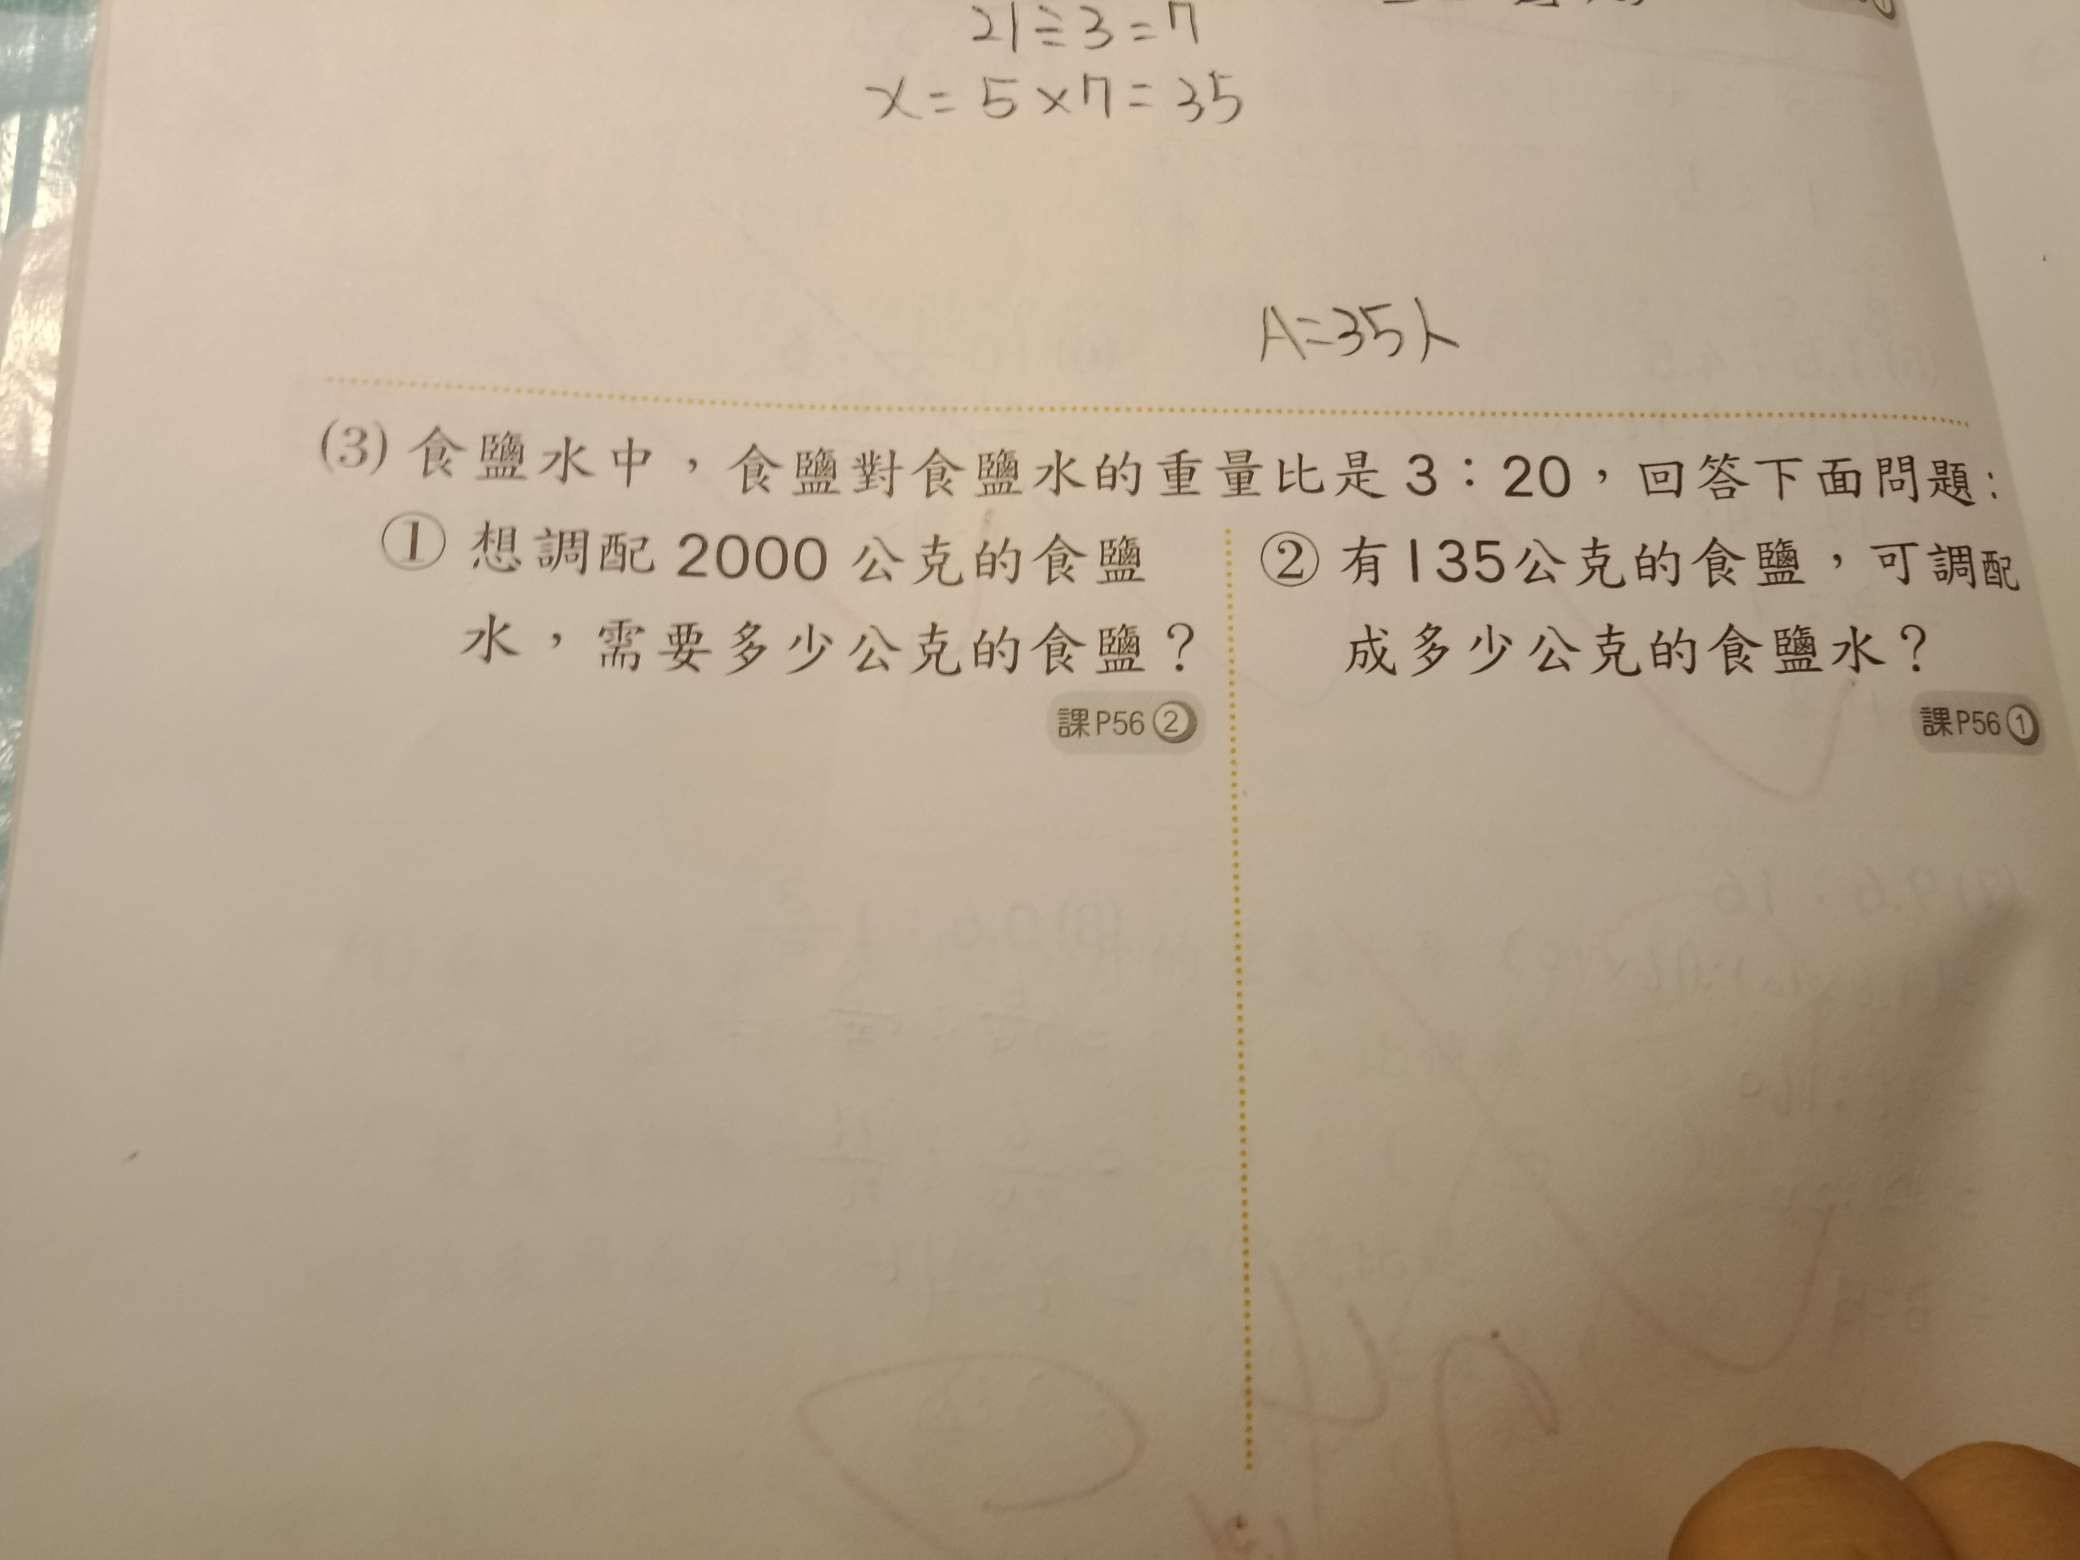 21÷3=7
x=5×7=35
A=35人
(3) 食鹽水中，食鹽對食鹽水的重量比是 3：20，回答下面問題：
① 想調配 2000 公克的食鹽
水，需要多少公克的食鹽？
課P56②
② 有135公克的食鹽，可調配
成多少公克的食鹽水？
課P56①